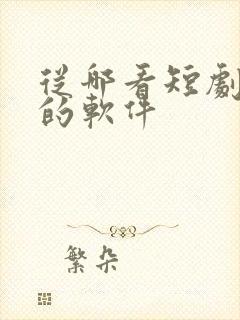 從哪看短劇
的軟件
繁朵